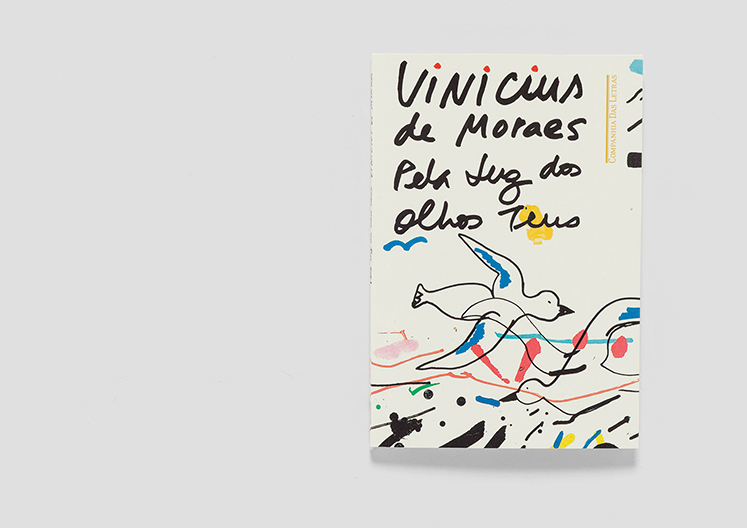 Vinicius
de Moraes
Pela luz dos
olhos Teus
COMPANHIA DAS LETRAS